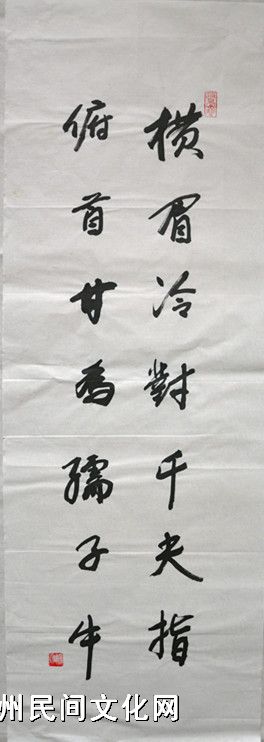 横眉冷對千夫指
俯首甘為孺子牛
州民间文化网